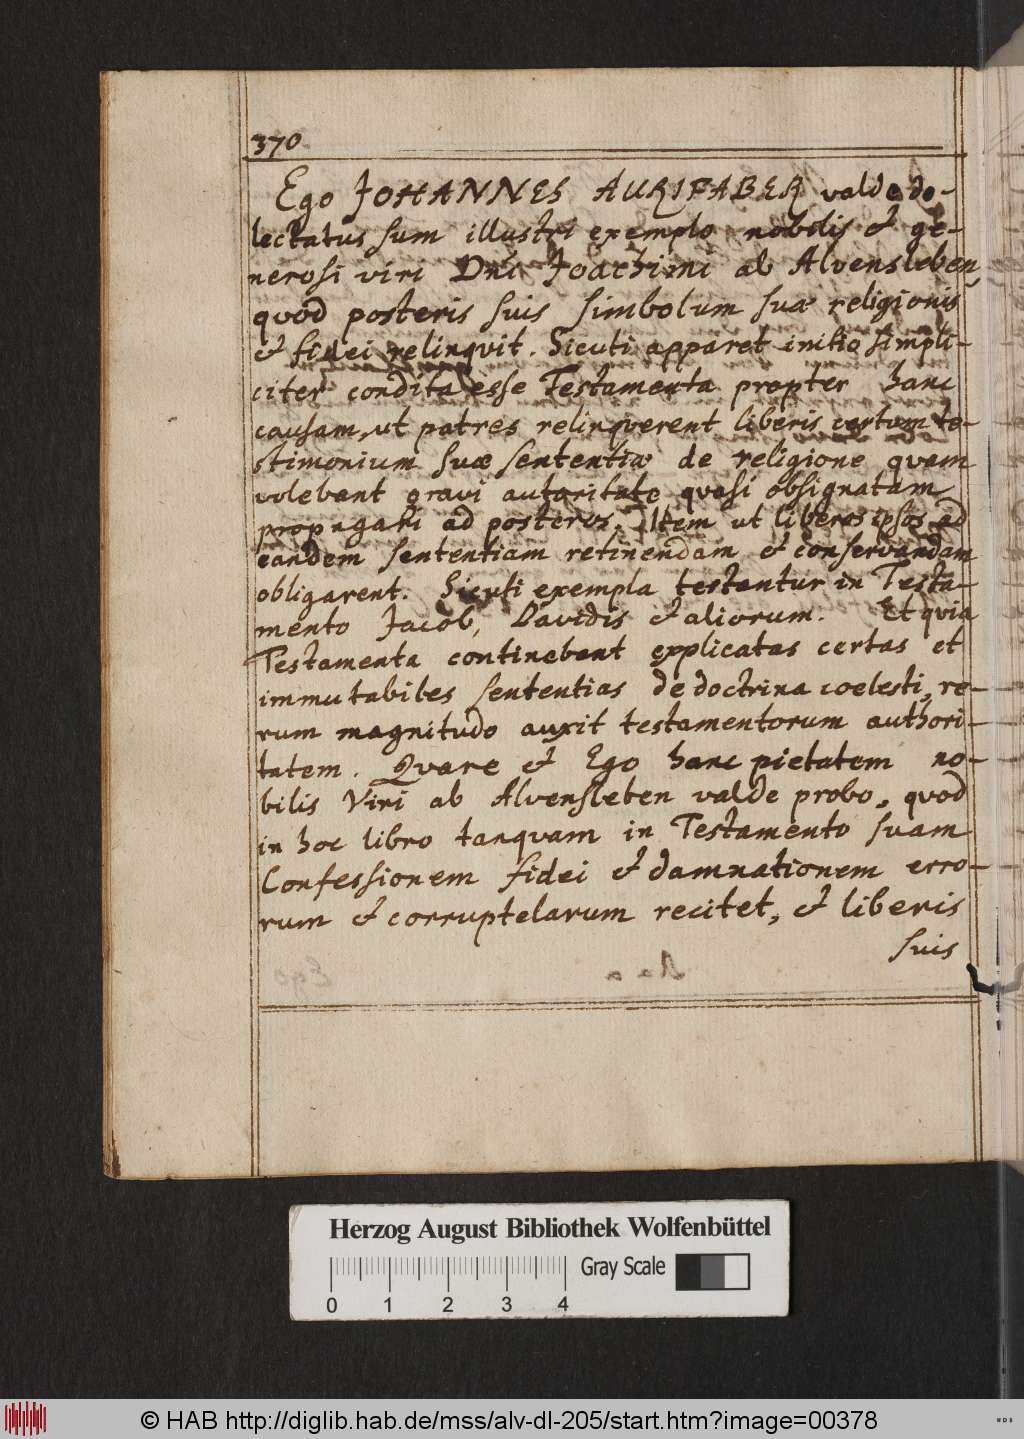 370
Ego JOHANNES AURIFABER valde de-
lectatus sum illustri exemplo nobilis & ge-
nerosi viri Dni Joachimi ab Alvensleben,
quod posteris suis simbolum suæ religionis
& fidei relinqvit. Sicuti apparet initio simpli-
citer condita esse Testamenta propter hanc
causam, ut patres relinqverent liberis certum te-
stimonium suæ sententiæ de religione qvam
volebant gravi autoritate qvasi obsignatam
propagari ad posteros. Item ut liberos ipsos ad
eandem sententiam retinendam & conservandam
obligarent. Sicuti exempla testantur in Testa-
mento Jacob, Davidis & aliorum. Et qvia
Testamenta continebant explicatas certas et
immutabiles sententias de doctrina coelesti, re-
rum magnitudo auxit testamentorum authori-
tatem. Qvare & Ego hanc pietatem no-
bilis Viri ab Alvensleben valde probo, qvod
in hoc libro tanqvam in Testamento suam
Confessionem fidei & damnationem erro-
rum & corruptelarum recitet, & liberis
suis
Herzog August Bibliothek Wolfenbüttel
Gray Scale
0 1 2 3 4
© HAB http://diglib.hab.de/mss/alv-dl-205/start.htm?image=00378